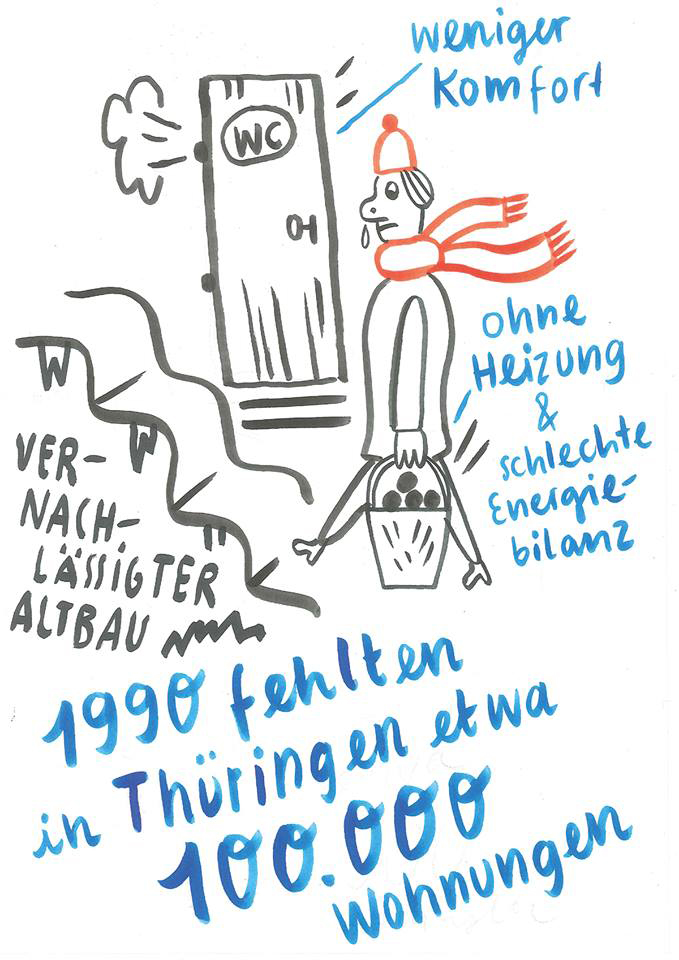 weniger
Komfort
WC
ohne
Heizung
&
schlechte
Energie-
bilanz
VER-
NACH-
LÄSSIGTER
ALTBAU
1990 fehlten
in Thüringen etwa
100.000
Wohnungen